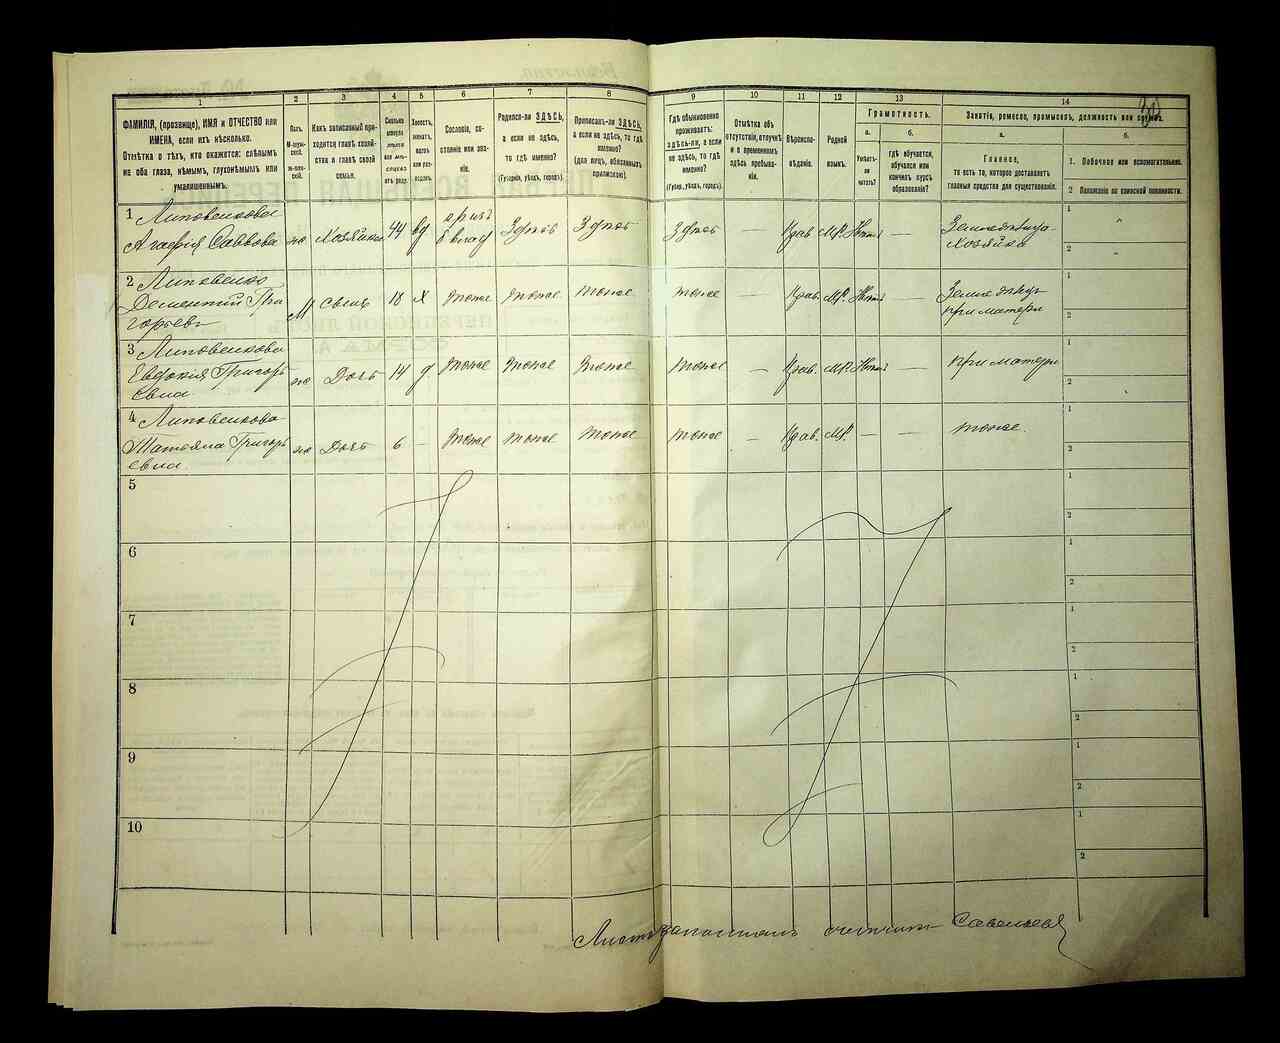 30
1
2
3
4
5
6
7
8
9
10
11
12
13
14
ФАМИЛІЯ, (прозвище), ИМЯ и ОТЧЕСТВО или
ИМЕНА, если ихъ нѣсколько.
Отмѣтка о тѣхъ, кто окажется: слѣпымъ
на оба глаза, нѣмымъ, глухонѣмымъ или
умалишеннымъ.
Полъ.
М-муж-
ской.
Ж-жен-
скій.
Какъ записанный при-
ходится главѣ хозяй-
ства и главѣ своей
семьи.
Сколько
минуло
лѣтъ
или мѣ-
сяцевъ
отъ роду.
Холостъ,
женатъ,
вдовъ
или раз-
веденъ.
Сословіе, со-
стояніе или зва-
ніе.
Родился-ли ЗДѢСЬ,
а если не здѣсь,
то гдѣ именно?
(Губернія, уѣздъ, городъ).
Приписанъ-ли ЗДѢСЬ,
а если не здѣсь, то гдѣ
именно?
(для лицъ, обязанныхъ
припискою).
Гдѣ обыкновенно
проживаетъ:
здѣсь-ли, а если
не здѣсь, то гдѣ
именно?
(Губер., уѣздъ, городъ).
Отмѣтка объ
отсутствіи, отлучкѣ
и о временномъ
здѣсь пребыва-
ніи.
Вѣроиспо-
вѣданіе.
Родной
языкъ.
Грамотность.
а.
Умѣетъ-
ли
читать?
б.
гдѣ обучается,
обучался или
кончилъ курсъ
образованія?
Занятіе, ремесло, промыселъ, должность или служба.
а.
Главное,
то есть то, которое доставляетъ
главныя средства для существованія.
б.
1. Побочное или вспомогательное.
2 Положеніе по воинской повинности.
1 Липовенкова
Агафія Саввова
ж Хозяйка 44 вд
Здѣсь Здѣсь Здѣсь — Прав М.Р. —
Хозяйка
1
2
2 Липовенко
Дементій Гри
горьевъ
М Сынъ 18 Х Тоже Тоже Тоже Тоже — Прав М.Р. —
при матери
1
2
3 Липовенкова
Евдокия Григорь
евна
ж Дочь 14 д Тоже Тоже Тоже Тоже — Прав. М.Р. —
При матери
1
2
4 Липовенкова
Татьяна Григорь
евна
ж Дочь 6 — Тоже Тоже Тоже Тоже — Прав. М.Р. — — Тоже.
1
2
5
1
2
6
1
2
7
1
2
8
1
2
9
1
2
10
1
2
Листъ счетчикъ